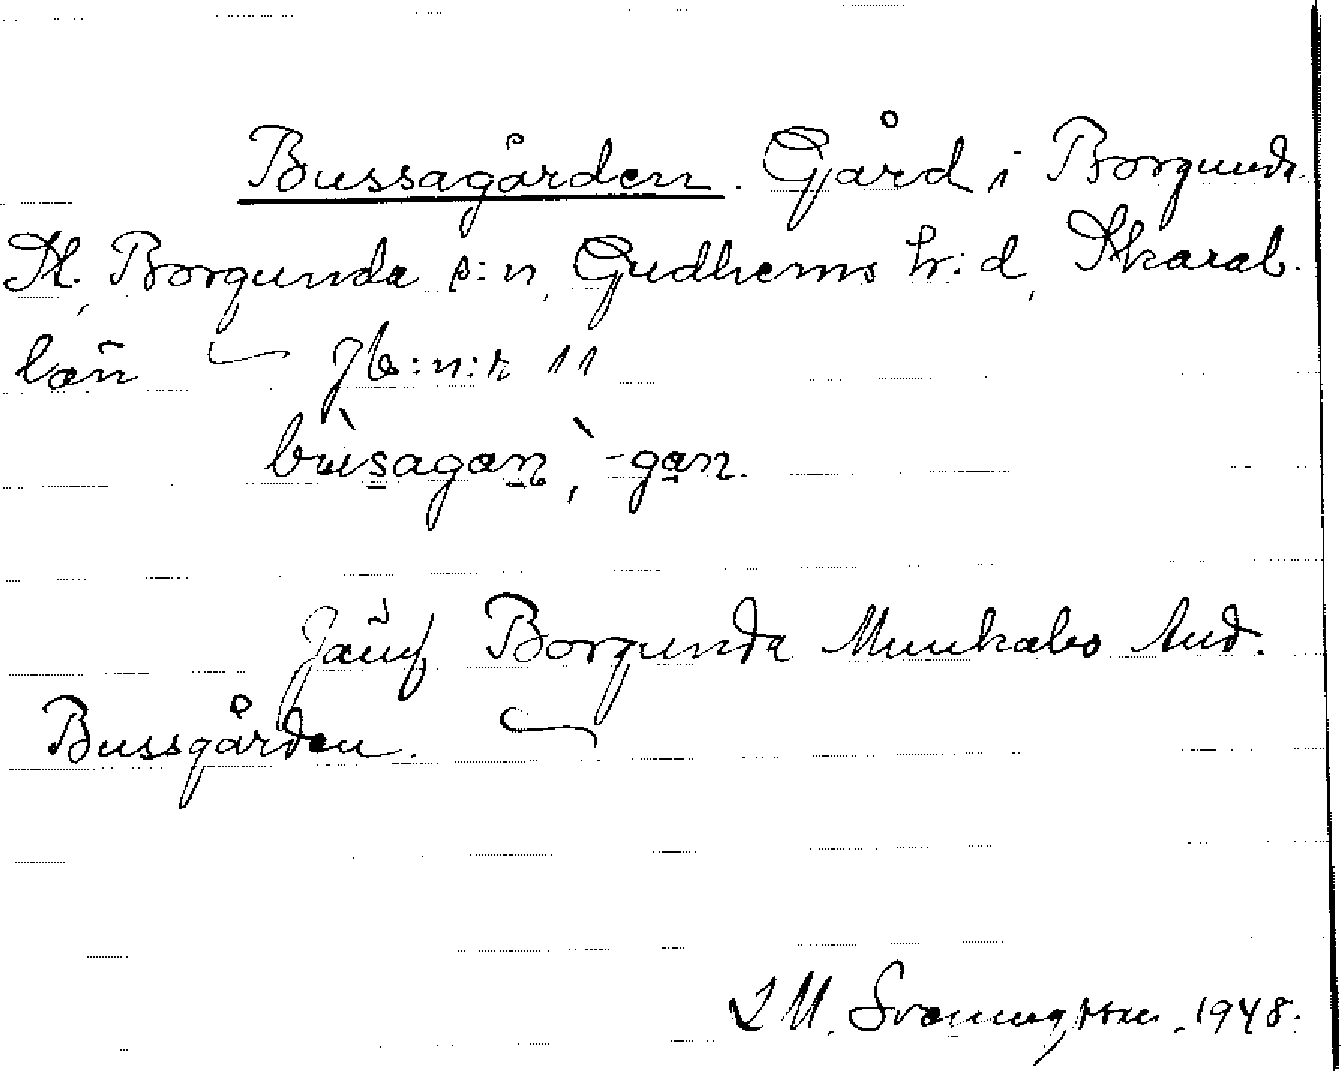 Bussagården. Gård i Borgunda
St. Borgunda s:n, Gudhems h:d, Skarab.
län Jb:n:r 11
bùsagan, `-gan.
Jämf Borgunda Munkabo And.
Bussgården.
1948.